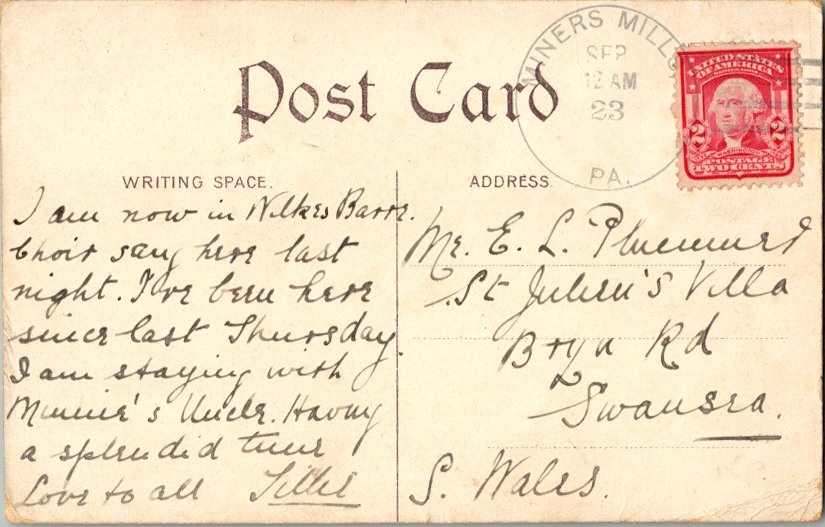 Post Card
MINERS MILLS
SEP
12 AM
23
PA.
UNITED STATES
OF AMERICA
2 2
WASHINGTON
POSTAGE
TWO CENTS
WRITING SPACE.
ADDRESS.
I am now in Wilkes Barre.
Choir sang here last
night. I've been here
since last Thursday.
I am staying with
Minnie's Uncle. Having
a splendid time
Love to all
Mr. E. L. Plummer
St Julien's Villa
Bryn Rd
Swansea.
S. Wales.